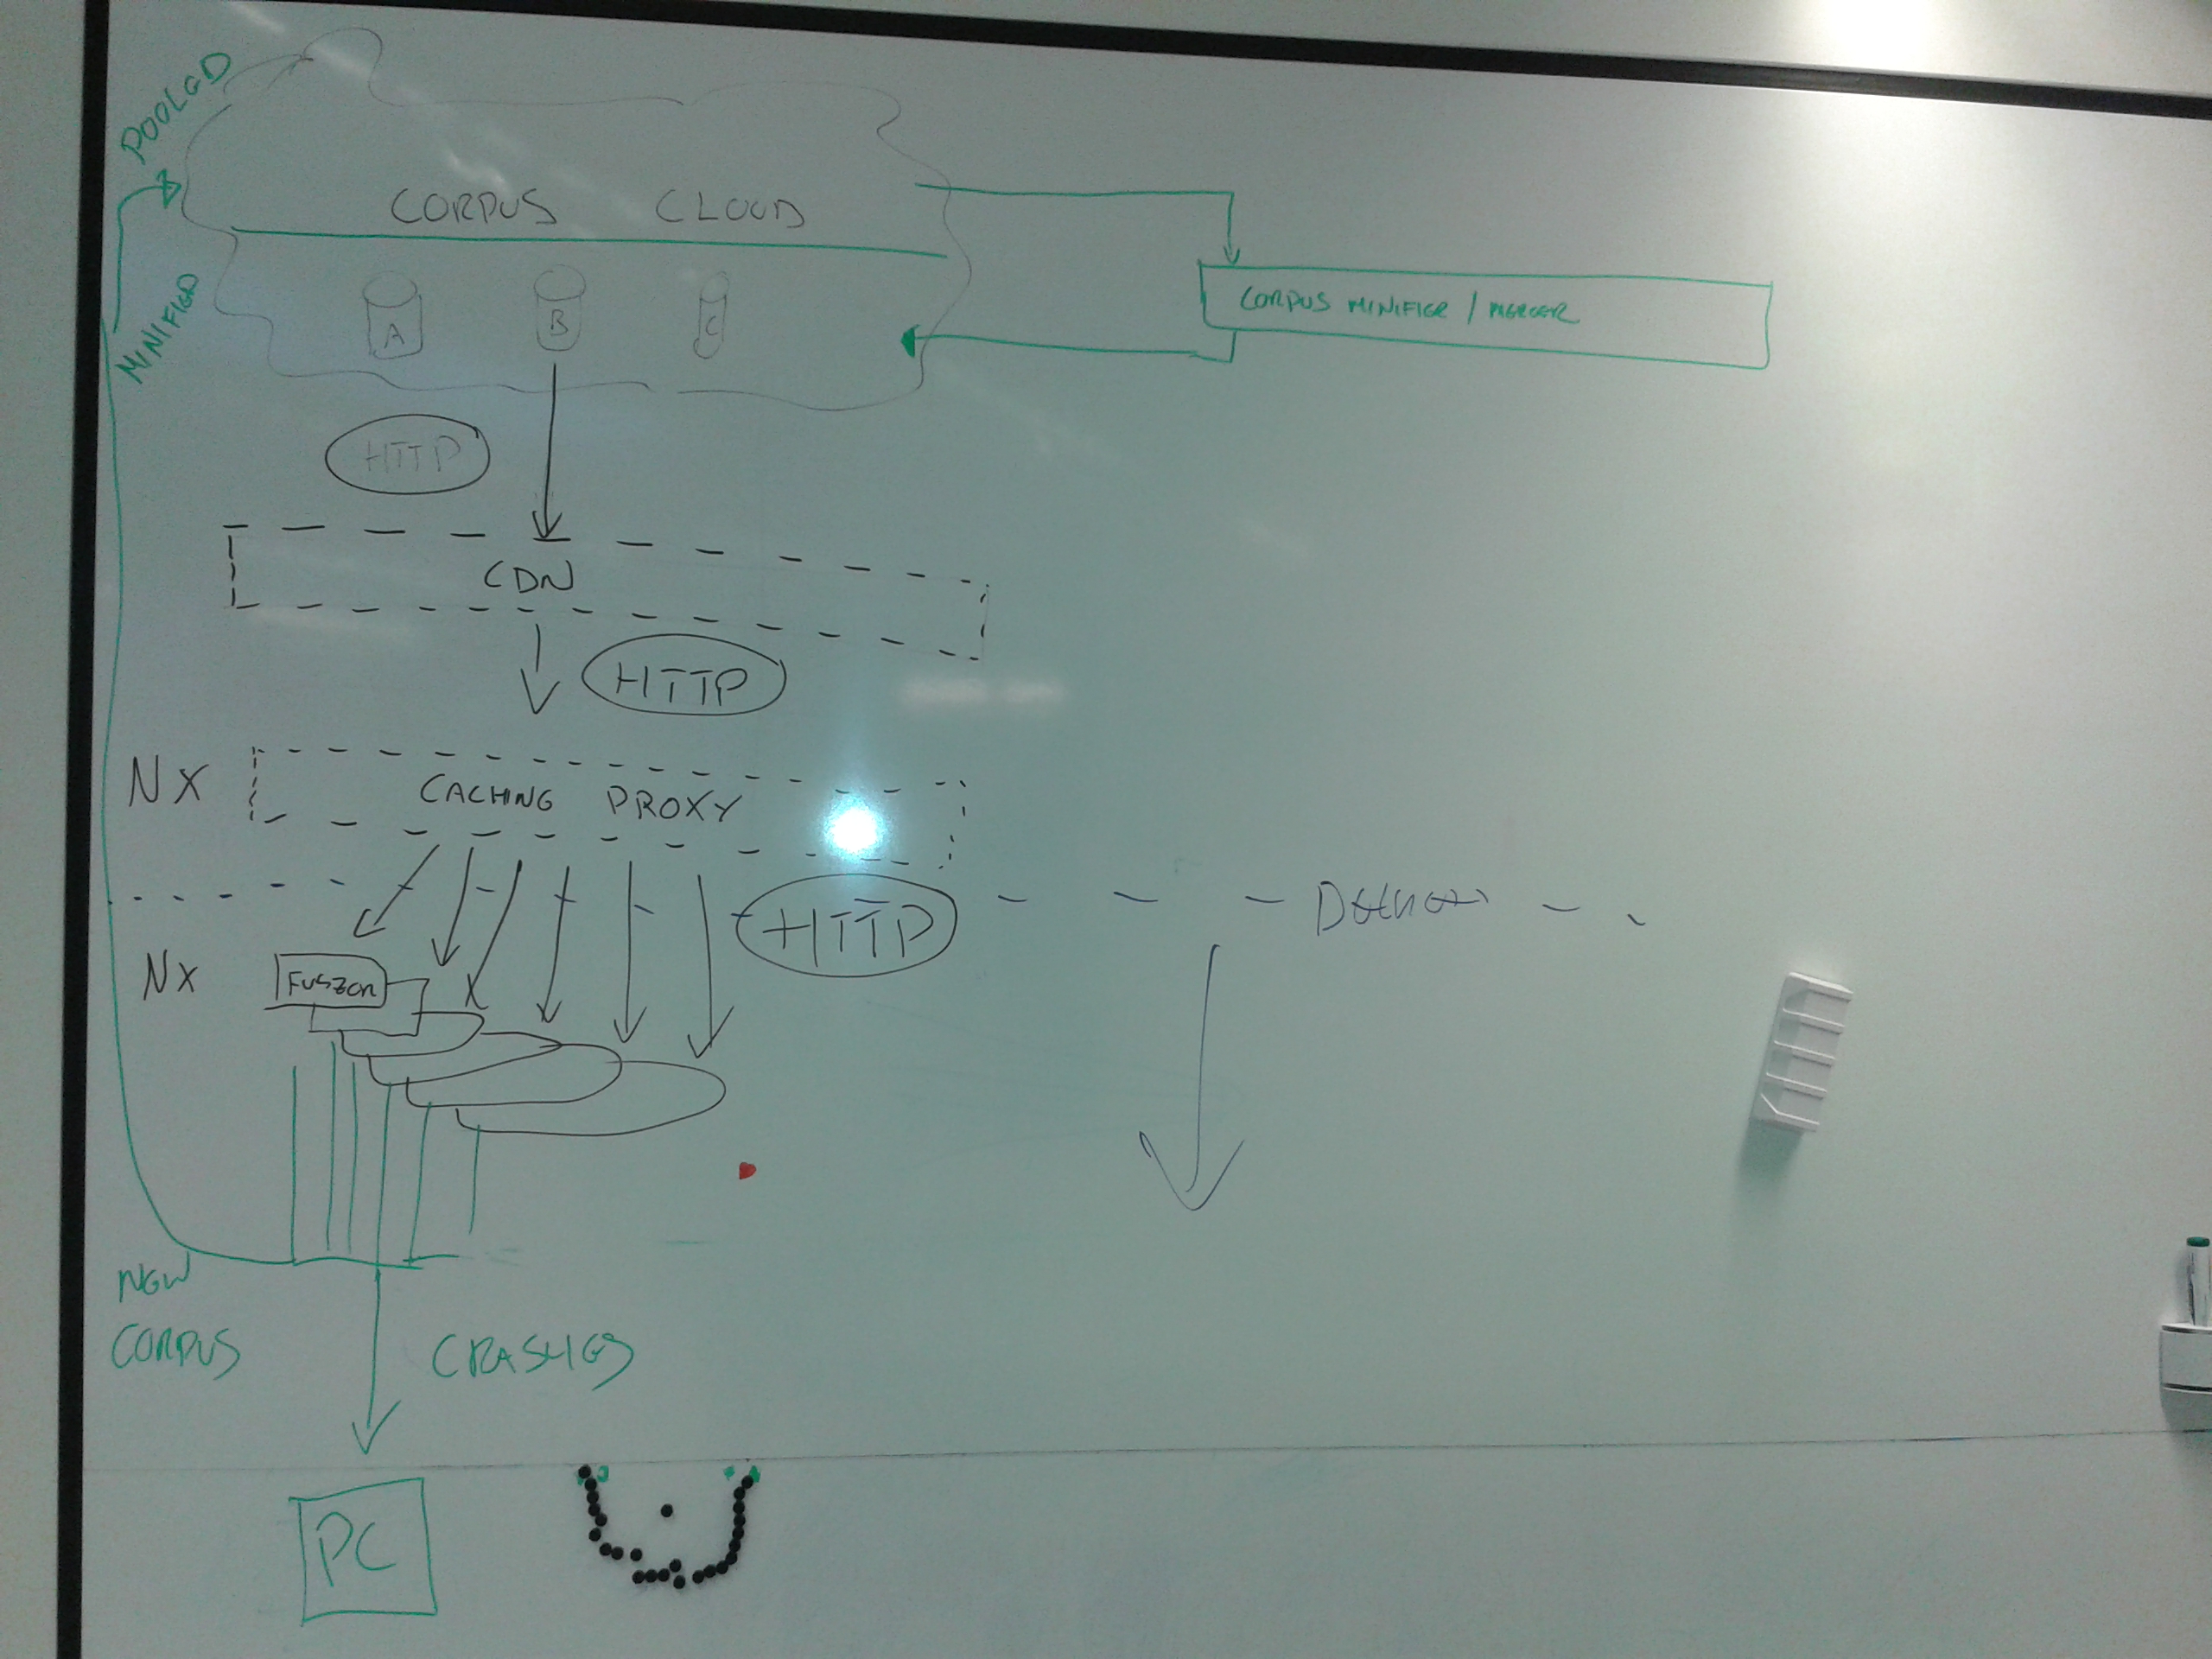 POOLED
CORPUS CLOUD
A
B
C
MINIFIED
CORPUS MINIFIER / MERGER
HTTP
CDN
HTTP
NX
CACHING PROXY
HTTP
NX
NEW
CORPUS
CRASHES
PC